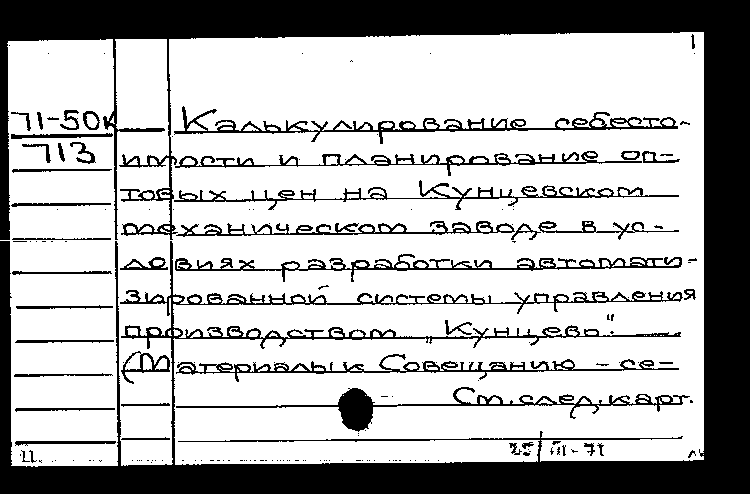 1
71-50к Калькулирование себесто-
713 имости и планирование оп-
товых цен на Кунцевском
механическом заводе в ус-
ловиях разработки автомати-
зированной системы управления
производством „Кунцево".
(Материалы к Совещанию - се-
См. след. карт.
11 25/III-71